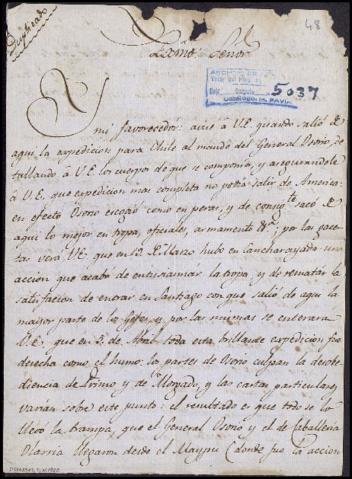 Duplicado
48
Exmo. Señor
5037
Y mi favorecedor: avisé à V.E. quando salió de
aqui la expedicion para Chile al mando del General Osorio, de
tallando à V.E. los cuerpos de que se componia, y asegurandole
à V.E. que expedicion mas completa no podia salir de America:
en efecto Osorio escogió como en peras, y de consigte. sacó de
aqui lo mejor en tropa, oficiales, armamento &c. por las gace
tas verá V.E. que en 19 de Marzo hubo en Cancharayada una
accion que acabó de entusiasmar la tropa, y de rematar la
satisfaccion de entrar en Santiago con que salió de aqui la
mayor parte de los Gefes, y por las mismas se enterará
V.E. que en 5 de Abril toda esta brillante expedicion fue
derecha como el humo: los partes de Osorio culpan la desobe
diencia de Primo y de Morgado, y las cartas particulares
varian sobre este punto: el resultado es que todo se lo
llevó la trampa, que el General Osorio y el de Caballeria
Olarria llegaron desde el Maypu (donde fue la accion